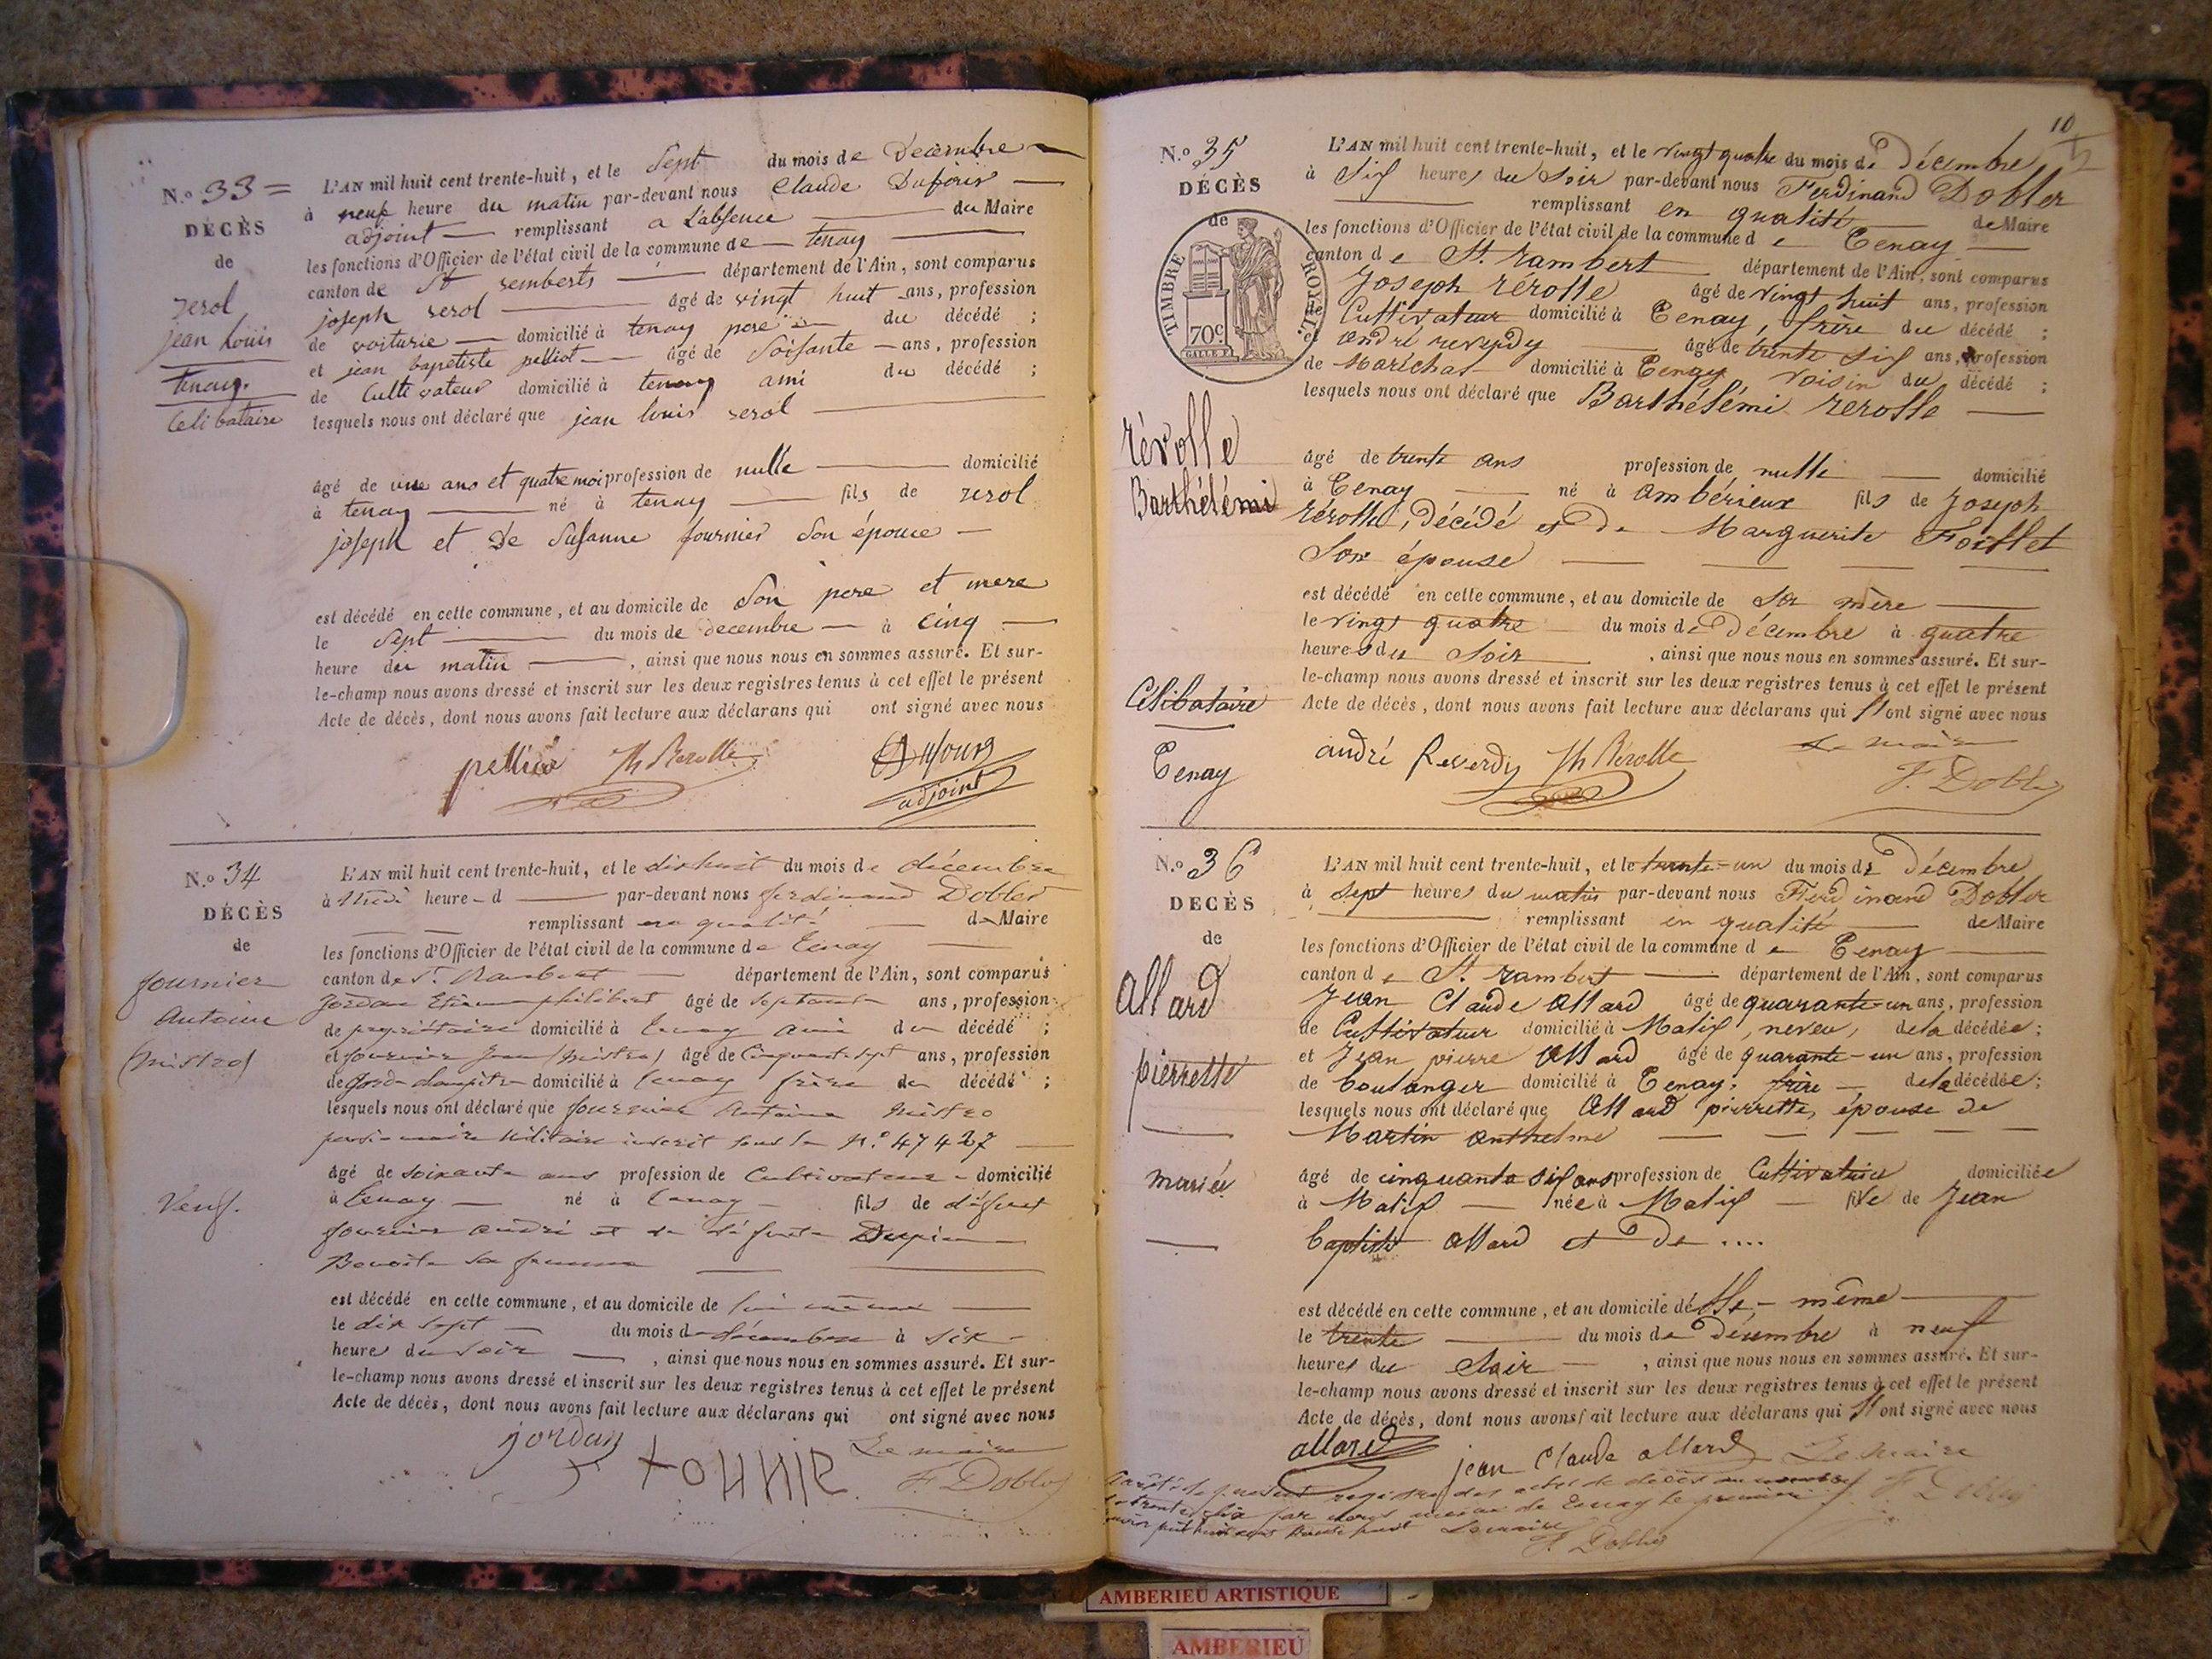 N.º 33 =
DÉCÈS
de
rerol
jean Louis
tenay.
Celibataire
L'AN mil huit cent trente-huit, et le Sept du mois de Decembre
à neuf heure du matin par-devant nous Claude Dufour
adjoint remplissant a L'absence du Maire
les fonctions d'Officier de l'état civil de la commune de tenay
canton de St remberts département de l'Ain, sont comparus
joseph rerol âgé de vingt huit ans, profession
de voiturie domicilié à tenay pere du décédé ;
et jean baptetiste pelliot âgé de Soisante ans, profession
de Culti vateur domicilié à tenay ami du décédé ;
lesquels nous ont déclaré que jean louis rerol
âgé de une ans et quatre moi profession de nulle domicilié
à tenay né à tenay fils de rerol
joseph et de Susanne fournier Son épouce
est décédé en cette commune, et au domicile de Son pere et mere
le Sept du mois de decembre à Cinq
heure du matin , ainsi que nous nous en sommes assuré. Et sur-
le-champ nous avons dressé et inscrit sur les deux registres tenus à cet effet le présent
Acte de décès, dont nous avons fait lecture aux déclarans qui ont signé avec nous
Jh Rerolle
adjoint
N.º 34
DÉCÈS
de
fournier
Antoine
(mistro)
Veuf.
L'AN mil huit cent trente-huit, et le dixhuit du mois de décembre
à Midi heure d par-devant nous ferdinand Dobler
remplissant en qualité de Maire
les fonctions d'Officier de l'état civil de la commune de Tenay
canton de St. Rambert département de l'Ain, sont comparus
Jordan Etienne philibert âgé de Septante ans, profession
de propriétaire domicilié à tenay ami du décédé ;
et fournier Jean (mistro) âgé de Cinquante sept ans, profession
de Garde champêtre domicilié à tenay frère du décédé ;
lesquels nous ont déclaré que fournier Antoine Mistro
pensionnaire Militaire inscrit sous le N.º 47427
âgé de soixante ans profession de Cultivateur domicilié
à tenay né à tenay fils de défunt
fournier andré et de défunte Dupin
Benoite sa femme
est décédé en cette commune, et au domicile de lui même
le dix sept du mois de décembre à six
heure du Soir , ainsi que nous nous en sommes assuré. Et sur-
le-champ nous avons dressé et inscrit sur les deux registres tenus à cet effet le présent
Acte de décès, dont nous avons fait lecture aux déclarans qui ont signé avec nous
jordan
Le maire
F. Dobler
10
N.º 35
DÉCÈS
de
TIMBRE ROYAL.
70c.
rérolle
Barthélémi
Célibataire
Tenay
L'AN mil huit cent trente-huit, et le vingt quatre du mois de Décembre
à Six heures du Soir par-devant nous Ferdinand Dobler
remplissant en qualité de Maire
les fonctions d'Officier de l'état civil de la commune d e Tenay
canton d e St. rambert département de l'Ain, sont comparus
Joseph rérolle âgé de vingt huit ans, profession
de Cultivateur domicilié à Tenay, frère du décédé ;
et andré reverdy âgé de trente Six ans, profession
de Maréchal domicilié à Tenay voisin du décédé ;
lesquels nous ont déclaré que Barthélémi rerolle
âgé de trente ans profession de nulle domicilié
à Tenay né à Ambérieux fils de Joseph
rérolle, Décédé et De Marguerite Foillet
Son épouse
est décédé en cette commune, et au domicile de Sa mère
le vingt quatre du mois de Décembre à quatre
heures du Soir , ainsi que nous nous en sommes assuré. Et sur-
le-champ nous avons dressé et inscrit sur les deux registres tenus à cet effet le présent
Acte de décès, dont nous avons fait lecture aux déclarans qui ont signé avec nous
andré Reverdy Jh Rérolle
Le maire
F. Dobler
N.º 36
DÉCÈS
de
allard
pierrette
mariée
L'AN mil huit cent trente-huit, et le trente-un du mois de Décembre
à sept heures du matin par-devant nous Ferdinand Dobler
remplissant en qualité de Maire
les fonctions d'Officier de l'état civil de la commune d e Tenay
canton d e St. rambert département de l'Ain, sont comparus
Jean Claude Allard âgé de quarante-un ans, profession
de Cultivateur domicilié à Matix, neveu, de la décédée ;
et Jean pierre Allard âgé de quarante-un ans, profession
de boulanger domicilié à Tenay, frère de la décédée ;
lesquels nous ont déclaré que Allard pierrette, épouse de
Martin anthelme
âgé de cinquante six ans profession de Cultivatrice domiciliée
à Matix née à Matix fille de Jean
baptiste Allard et De ....
est décédé en cette commune, et au domicile d'elle-même
le trente du mois de Décembre à neuf
heures du Soir , ainsi que nous nous en sommes assuré. Et sur-
le-champ nous avons dressé et inscrit sur les deux registres tenus à cet effet le présent
Acte de décès, dont nous avons fait lecture aux déclarans qui ont signé avec nous
allard jean Claude allard Le Maire
F. Dobler
registre des actes de décès au nombre
de trente six par nous maire de Tenay le premier
Le maire
F. Dobler
AMBERIEU ARTISTIQUE
AMBERIEU